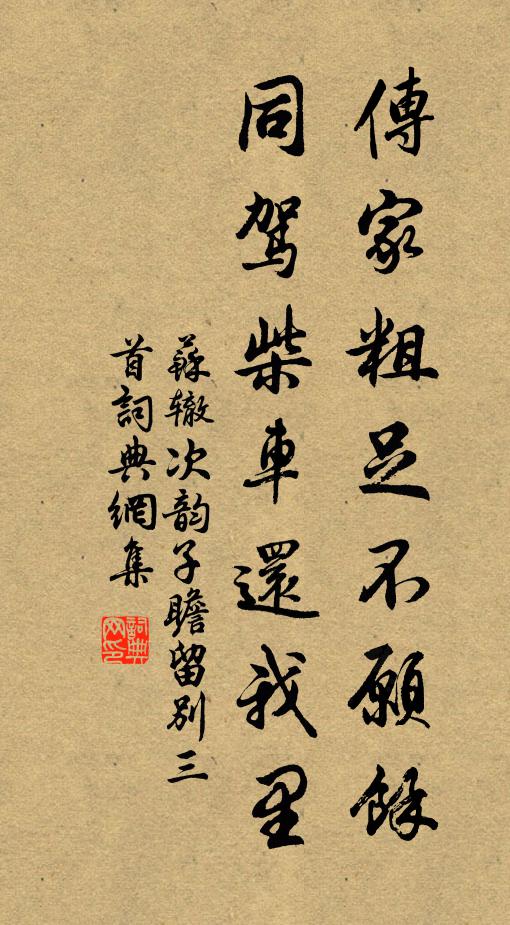 傳家粗足不願餘
同駕柴車還我里
蘇轍次韵子瞻留別三
首詞典網集
詞典
网印